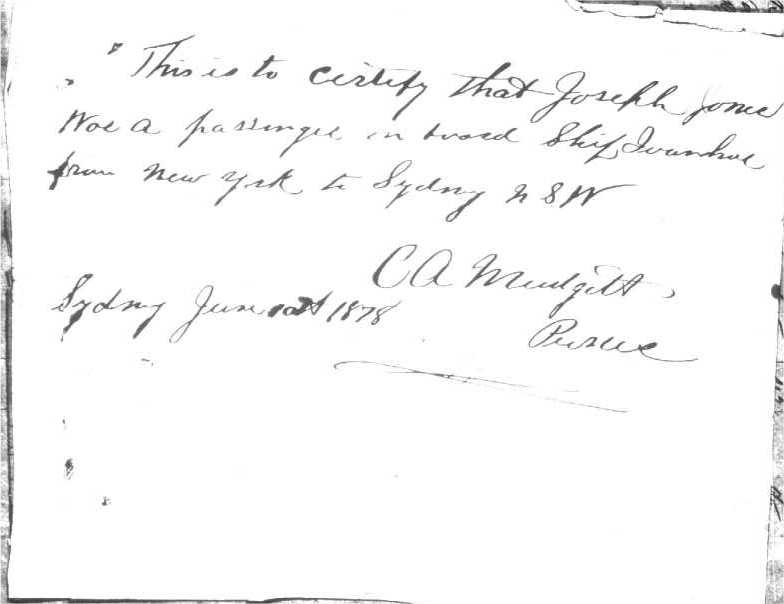 "This is to certify that Joseph Jones
Was a passenger on board Ship Ivanhoe
from New York to Sydney N S W
C A Mudgett,
Sydney June 1878
Purser